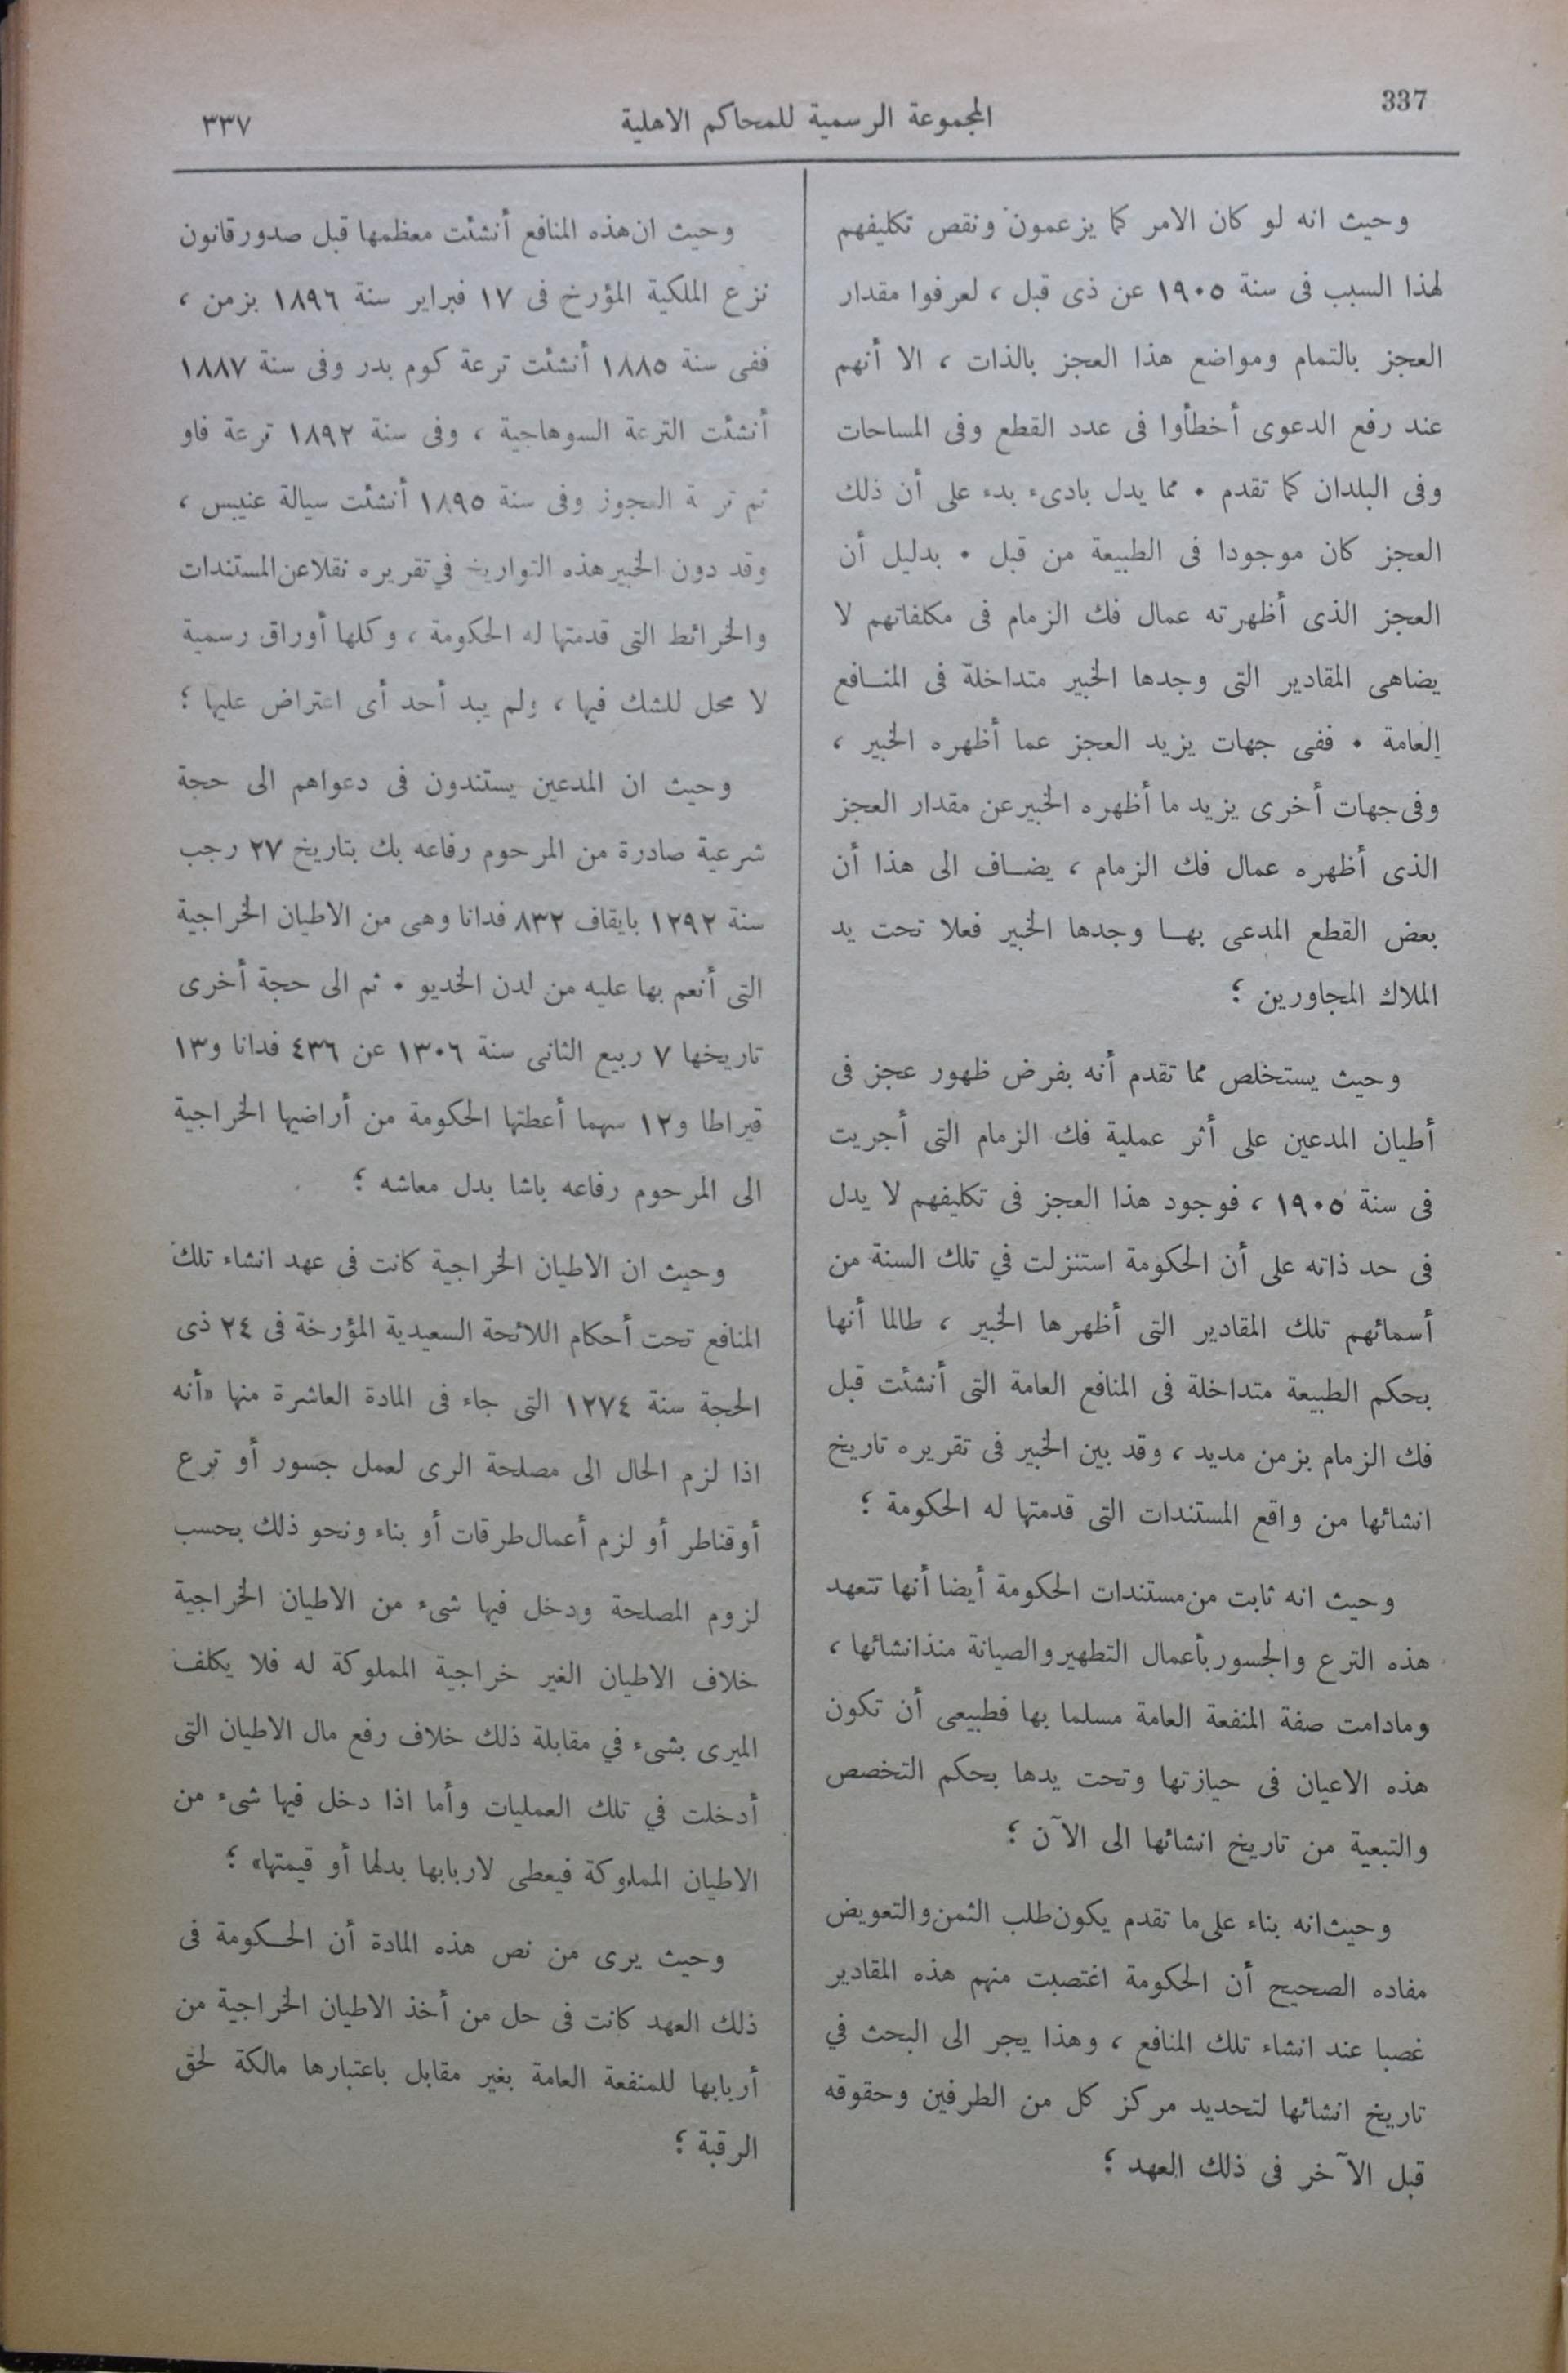 337
المجموعة الرسمية للمحاكم الاهلية
٣٣٧
وحيث انه لو كان الامر كما يزعمون ونقص تكليفهم
لهذا السبب فى سنة ١٩٠٥ عن ذى قبل ، لعرفوا مقدار
العجز بالتمام ومواضع هذا العجز بالذات ، الا أنهم
عند رفع الدعوى أخطأوا فى عدد القطع وفى المساحات
وفى البلدان كما تقدم ٠ مما يدل بادىء بدء على أن ذلك
العجز كان موجودا فى الطبيعة من قبل ٠ بدليل أن
العجز الذى أظهرته عمال فك الزمام فى مكلفاتهم لا
يضاهى المقادير التى وجدها الخبير متداخلة فى المنافع
العامة ٠ ففى جهات يزيد العجز عما أظهره الخبير ،
وفى جهات أخرى يزيد ما أظهره الخبير عن مقدار العجز
الذى أظهره عمال فك الزمام ، يضاف الى هذا أن
بعض القطع المدعى بها وجدها الخبير فعلا تحت يد
الملاك المجاورين ؛
وحيث يستخلص مما تقدم أنه بفرض ظهور عجز فى
أطيان المدعين على أثر عملية فك الزمام التى أجريت
فى سنة ١٩٠٥ ، فوجود هذا العجز فى تكليفهم لا يدل
فى حد ذاته على أن الحكومة استنزلت في تلك السنة من
أسمائهم تلك المقادير التى أظهرها الخبير ، طالما أنها
بحكم الطبيعة متداخلة فى المنافع العامة التى أنشئت قبل
فك الزمام بزمن مديد ، وقد بين الخبير فى تقريره تاريخ
انشائها من واقع المستندات التى قدمتها له الحكومة ؛
وحيث انه ثابت من مستندات الحكومة أيضا أنها تتعهد
هذه الترع والجسور بأعمال التطهير والصيانة منذ انشائها ،
ومادامت صفة المنفعة العامة مسلما بها فطبيعى أن تكون
هذه الاعيان فى حيازتها وتحت يدها بحكم التخصص
والتبعية من تاريخ انشائها الى الآن ؛
وحيث انه بناء على ما تقدم يكون طلب الثمن والتعويض
مفاده الصحيح أن الحكومة اغتصبت منهم هذه المقادير
غصبا عند انشاء تلك المنافع ، وهذا يجر الى البحث في
تاريخ انشائها لتحديد مركز كل من الطرفين وحقوقه
قبل الآخر فى ذلك العهد ؛
وحيث ان هذه المنافع أنشئت معظمها قبل صدور قانون
نزع الملكية المؤرخ فى ١٧ فبراير سنة ١٨٩٦ بزمن ،
ففى سنة ١٨٨٥ أنشئت ترعة كوم بدر وفى سنة ١٨٨٧
أنشئت الترعة السوهاجية ، وفى سنة ١٨٩٢ ترعة فاو
ثم العجوز وفى سنة ١٨٩٥ أنشئت سيالة عنيبس ،
وقد دون الخبير هذه التواريخ في تقريره نقلا عن المستندات
والخرائط التى قدمتها له الحكومة ، وكلها أوراق رسمية
لا محل للشك فيها ، ولم يبد أحد أى اعتراض عليها ؛
وحيث ان المدعين يستندون فى دعواهم الى حجة
شرعية صادرة من المرحوم رفاعه بك بتاريخ ٢٧ رجب
سنة ١٢٩٢ بايقاف ٨٣٢ فدانا وهى من الاطيان الخراجية
التى أنعم بها عليه من لدن الخديو ٠ ثم الى حجة أخرى
تاريخها ٧ ربيع الثانى سنة ١٣٠٦ عن ٤٣٦ فدانا و١٣
قيراطا و١٢ سهما أعطتها الحكومة من أراضيها الخراجية
الى المرحوم رفاعه باشا بدل معاشه ؛
وحيث ان الاطيان الخراجية كانت فى عهد انشاء تلك
المنافع تحت أحكام اللائحة السعيدية المؤرخة فى ٢٤ ذى
الحجة سنة ١٢٧٤ التى جاء فى المادة العاشرة منها «أنه
اذا لزم الحال الى مصلحة الرى لعمل جسور أو ترع
أو قناطر أو لزم أعمال طرقات أو بناء ونحو ذلك بحسب
لزوم المصلحة ودخل فيها شىء من الاطيان الخراجية
خلاف الاطيان الغير خراجية المملوكة له فلا يكلف
الميرى بشىء في مقابلة ذلك خلاف رفع مال الاطيان التى
أدخلت في تلك العمليات وأما اذا دخل فيها شىء من
الاطيان المملوكة فيعطى لاربابها بدلها أو قيمتها» ؛
وحيث يرى من نص هذه المادة أن الحكومة فى
ذلك العهد كانت فى حل من أخذ الاطيان الخراجية من
أربابها للمنفعة العامة بغير مقابل باعتبارها مالكة لحق
الرقبة ؛